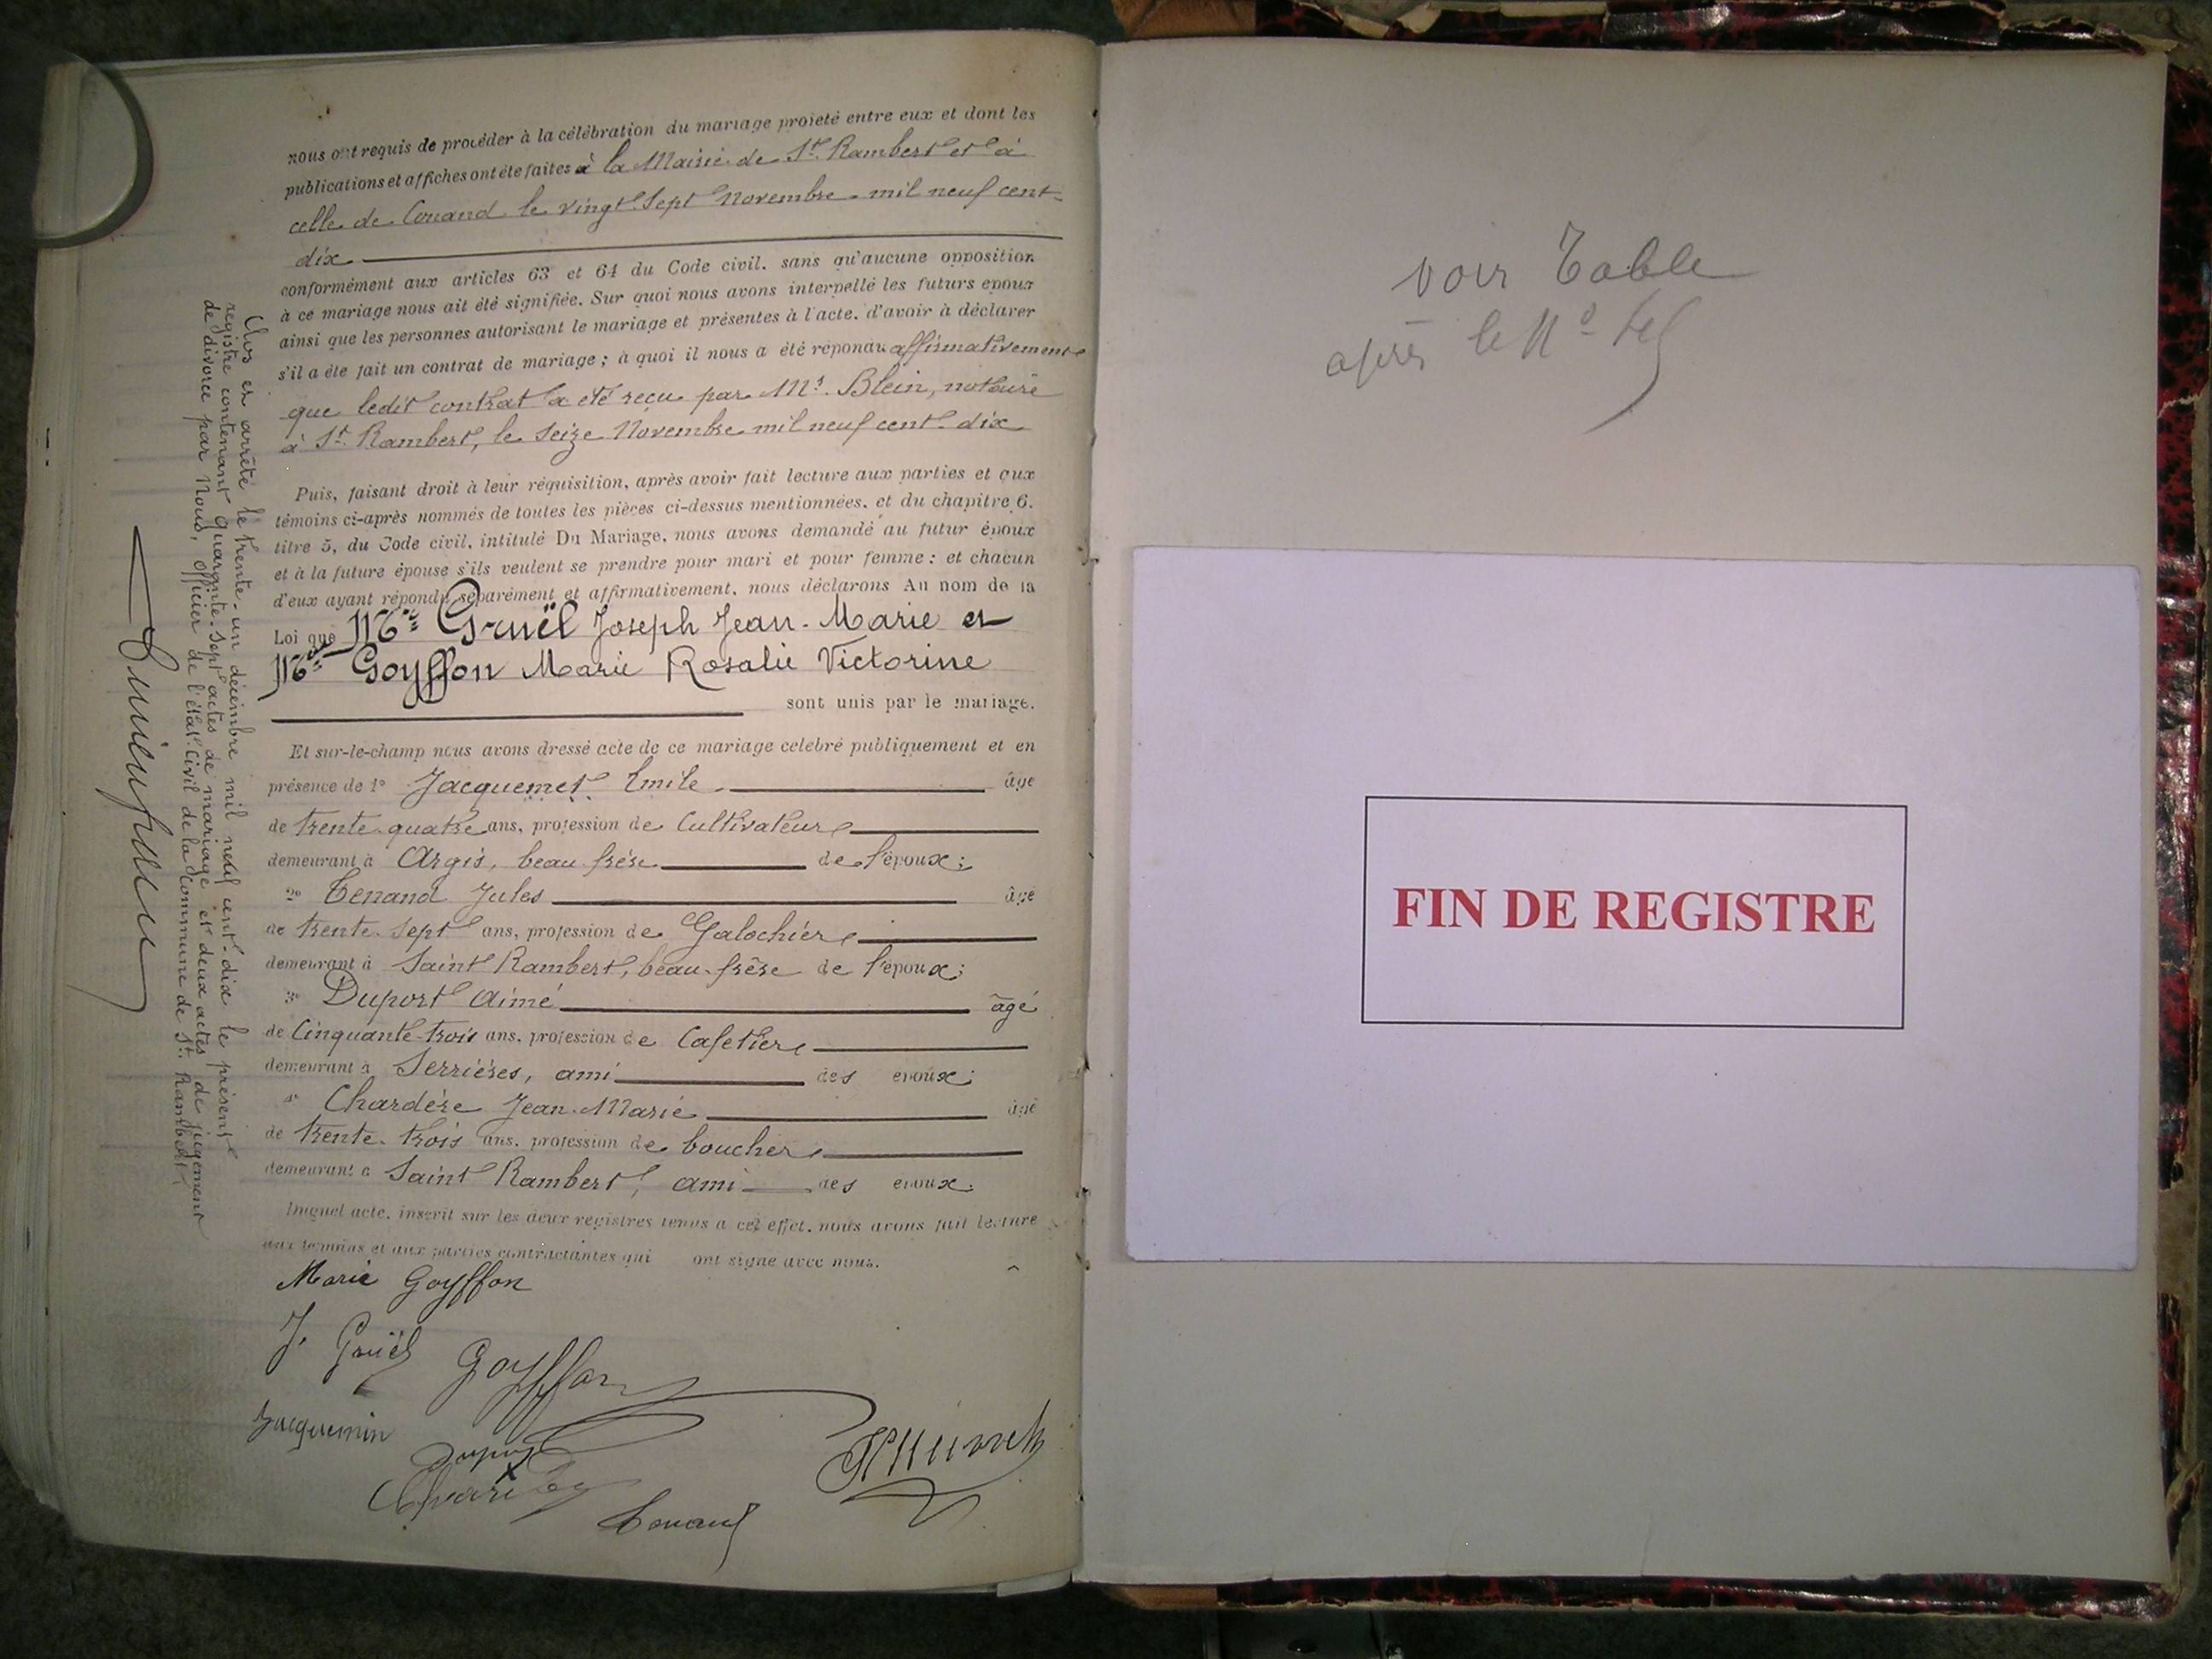 nous ont requis de procéder à la célébration du mariage projeté entre eux et dont les
publications et affiches ont été faites à la Mairie de St. Rambert et à
celle de Conand le vingt-sept Novembre mil neuf cent
dix
conformément aux articles 63 et 64 du Code civil. sans qu'aucune opposition
à ce mariage nous ait été signifiée. Sur quoi nous avons interpellé les futurs époux
ainsi que les personnes autorisant le mariage et présentes à l'acte. d'avoir à déclarer
s'il a été fait un contrat de mariage ; à quoi il nous a été répondu affirmativement
que ledit contrat a été reçu par Me. Blein, notaire
à St. Rambert, le seize Novembre mil neuf cent dix
Puis, faisant droit à leur réquisition, après avoir fait lecture aux parties et aux
témoins ci-après nommés de toutes les pièces ci-dessus mentionnées. et du chapitre 6.
titre 5, du Code civil, intitulé Du Mariage, nous avons demandé au futur époux
et à la future épouse s'ils veulent se prendre pour mari et pour femme : et chacun
d'eux ayant répondu séparément et affirmativement, nous déclarons Au nom de la
Loi que Mr. Gruël Joseph Jean-Marie et
Goyffon Marie Rosalie Victorine
sont unis par le mariage.
Et sur-le-champ nous avons dressé acte de ce mariage célébré publiquement et en
présence de 1° Jacquemet Emile âgé
de trente-quatre ans, profession de Cultivateur
demeurant à Argis, beau-frère de l'époux ;
2° Tenand Jules âgé
de trente-sept ans, profession de Galochier
demeurant à Saint Rambert, beau-frère de l'époux ;
3° Duport Aimé âgé
de Cinquante-trois ans, profession de Cafetier
demeurant à Serrières, ami des époux ;
4° Chardère Jean-Marie âgé
de trente-trois ans, profession de boucher
demeurant à Saint Rambert, ami des époux.
Duquel acte, inscrit sur les deux registres tenus à cet effet, nous avons fait lecture
aux témoins et aux parties contractantes qui ont signé avec nous.
Marie Goyffon
J. Gruël
Goyffon
Tenand
Clos et arrêté le trente-un décembre mil neuf cent dix le présent
registre contenant quarante-sept actes de mariage et deux actes de jugement
de divorce par Nous, officier de l'état-civil de la commune de St. Rambert,
voir Table
après le N°
FIN DE REGISTRE